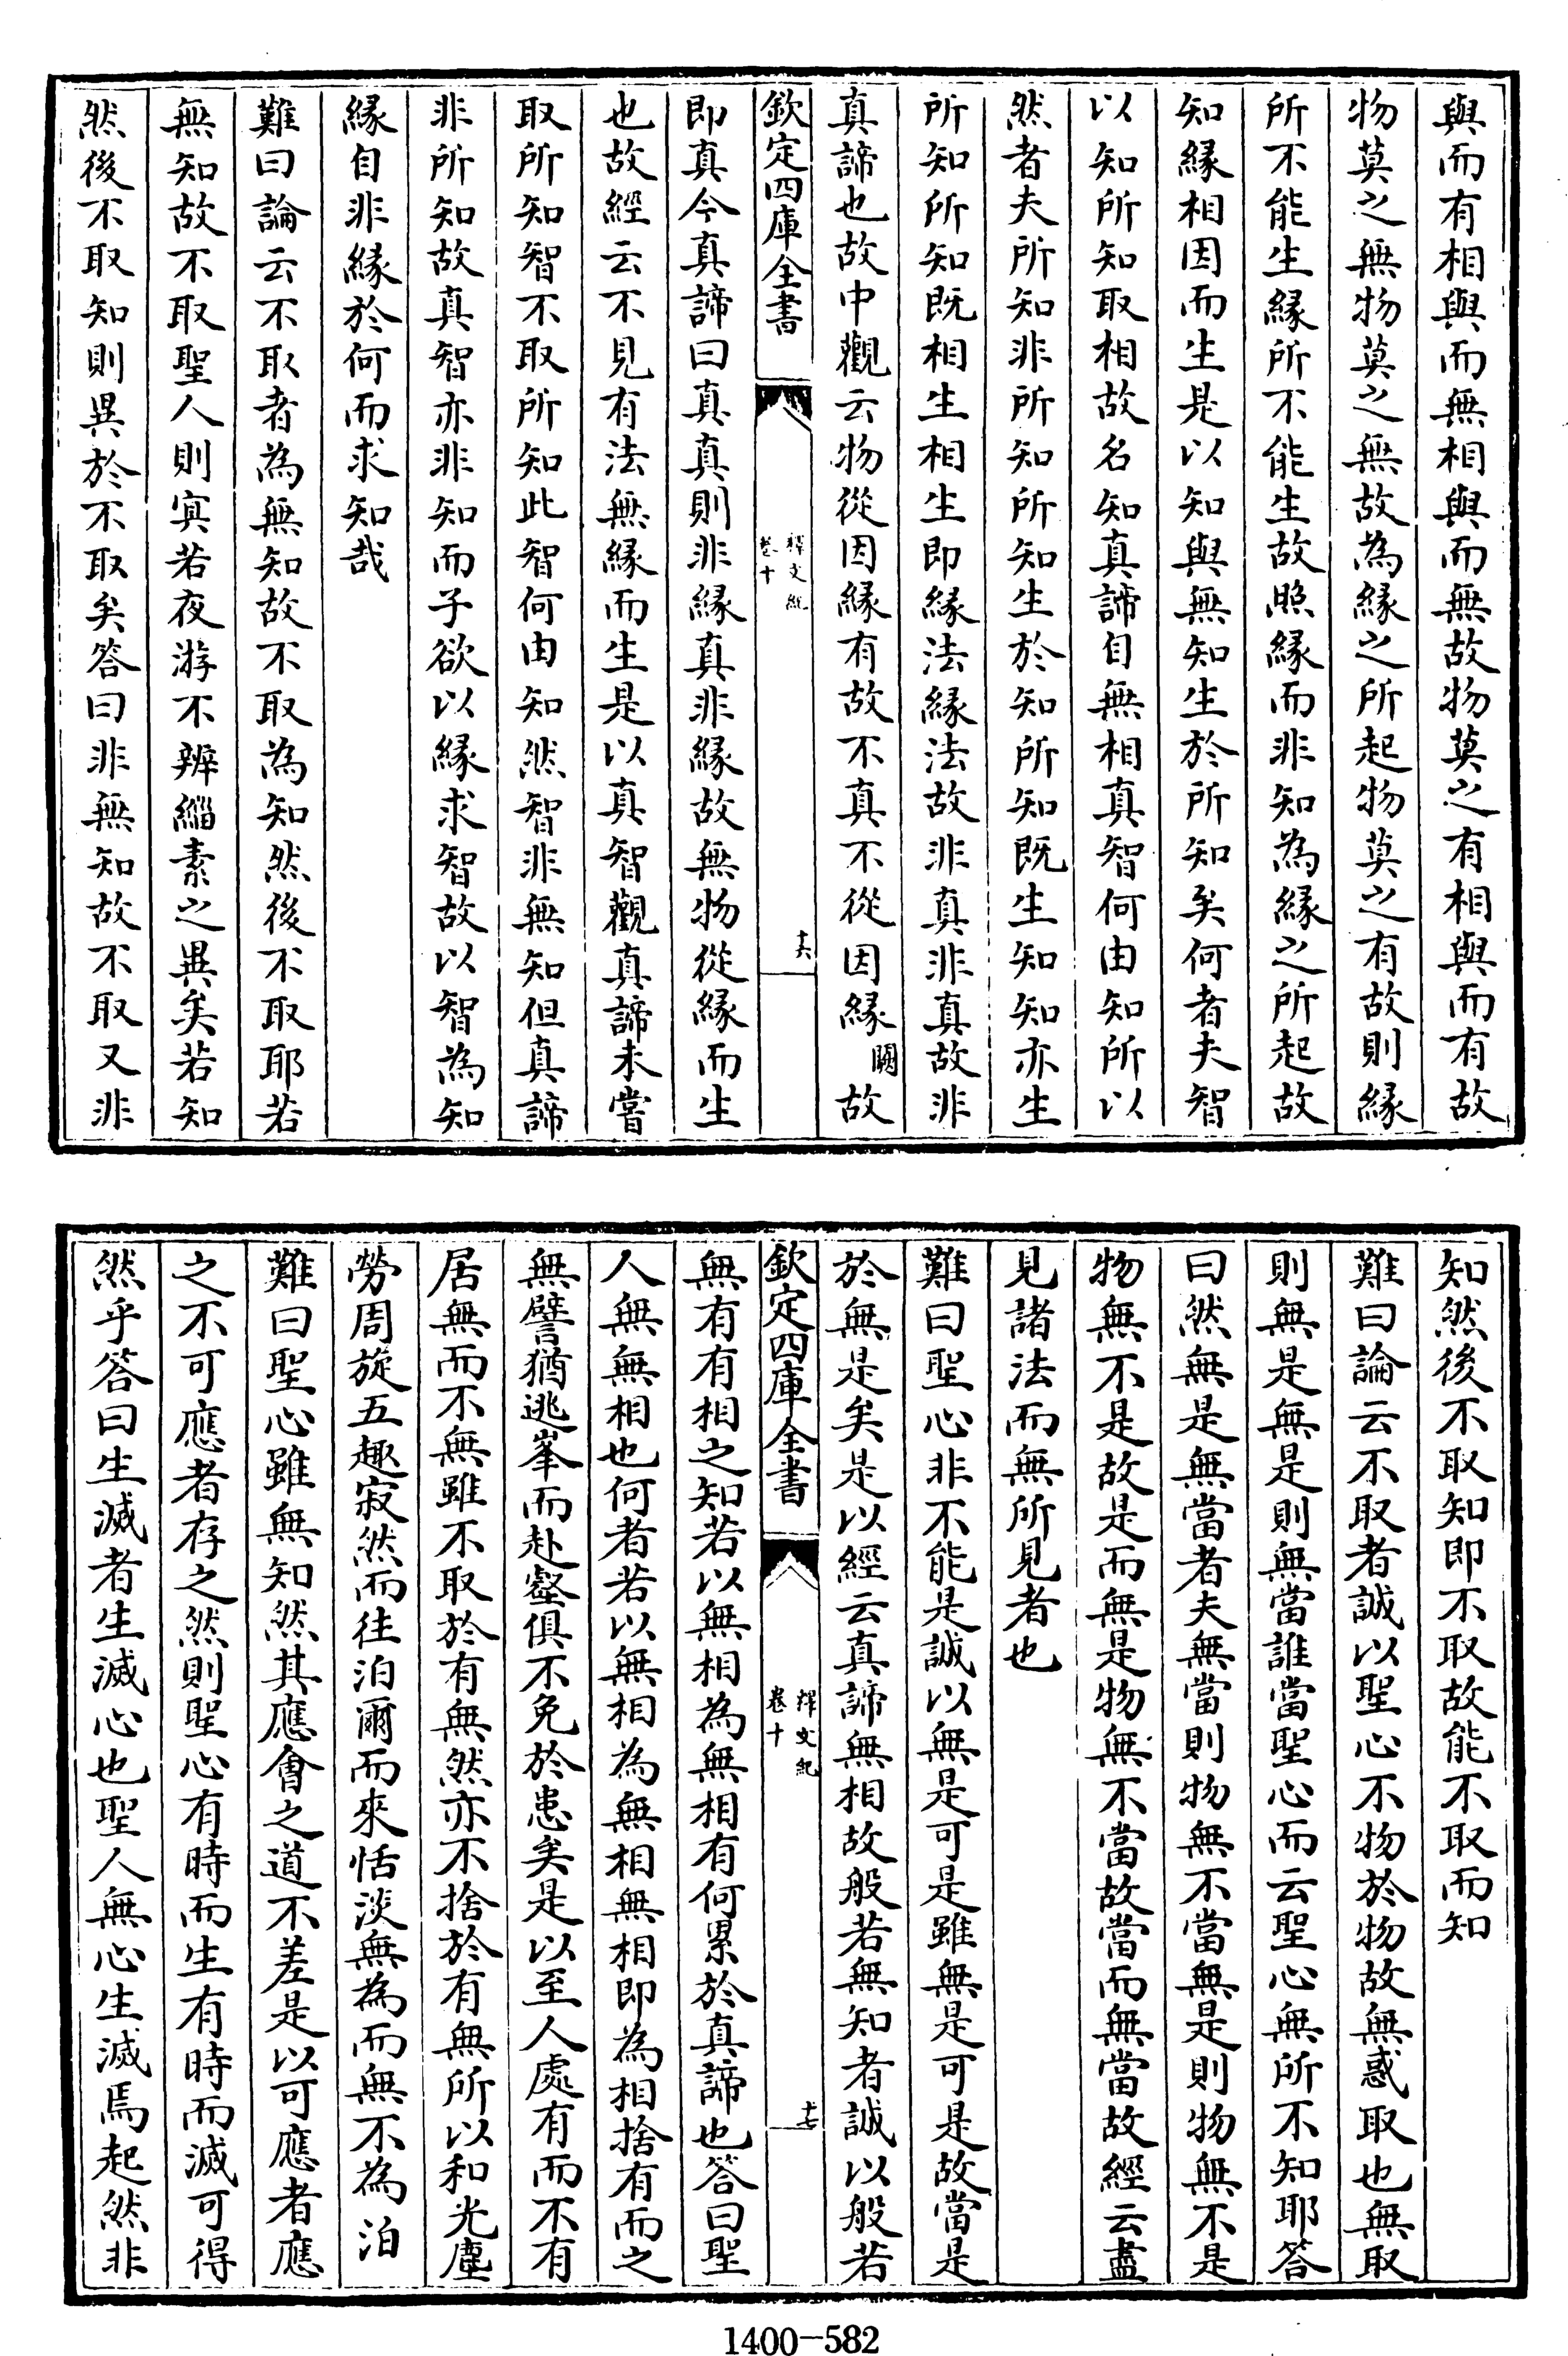 與而有相與而無相與而無故物莫之有相與而有故
物莫之無物莫之無故為緣之所起物莫之有故則緣
所不能生緣所不能生故照緣而非知為緣之所起故
知緣相因而生是以知與無知生於所知矣何者夫智
以知所知取相故名知真諦自無相真智何由知所以
然者夫所知非所知所知生於知所知既生知知亦生
所知所知既相生相生即緣法緣法故非真非真故非
真諦也故中觀云物從因緣有故不真不從因緣闕故
欽定四庫全書
釋文紀
卷十
十六
即真今真諦曰真真則非緣真非緣故無物從緣而生
也故經云不見有法無緣而生是以真智觀真諦未嘗
取所知智不取所知此智何由知然智非無知但真諦
非所知故真智亦非知而子欲以緣求智故以智為知
緣自非緣於何而求知哉
難曰論云不取者為無知故不取為知然後不取耶若
無知故不取聖人則冥若夜游不辨緇素之異矣若知
然後不取知則異於不取矣答曰非無知故不取又非
知然後不取知即不取故能不取而知
難曰論云不取者誠以聖心不物於物故無惑取也無取
則無是無是則無當誰當聖心而云聖心無所不知耶答
曰然無是無當者夫無當則物無不當無是則物無不是
物無不是故是而無是物無不當故當而無當故經云盡
見諸法而無所見者也
難曰聖心非不能是誠以無是可是雖無是可是故當是
於無是矣是以經云真諦無相故般若無知者誠以般若
欽定四庫全書
釋文紀
卷十
十七
無有有相之知若以無相為無相有何累於真諦也答曰聖
人無無相也何者若以無相為無相無相即為相捨有而之
無譬猶逃峯而赴壑俱不免於患矣是以至人處有而不有
居無而不無雖不取於有無然亦不捨於有無所以和光塵
勞周旋五趣寂然而往泊爾而來恬淡無為而無不為泊
難曰聖心雖無知然其應會之道不差是以可應者應
之不可應者存之然則聖心有時而生有時而滅可得
然乎答曰生滅者生滅心也聖人無心生滅焉起然非
1400-582